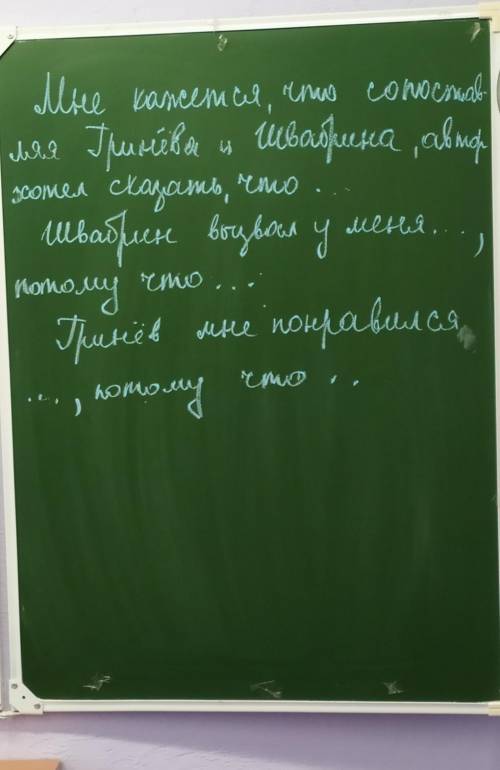 Мне кажется, что сопостав-
ляя Гринёва и Швабрина, автор
хотел сказать, что ...
Швабрин вызвал у меня...,
потому что ...
Гринёв мне понравился
..., потому что ..